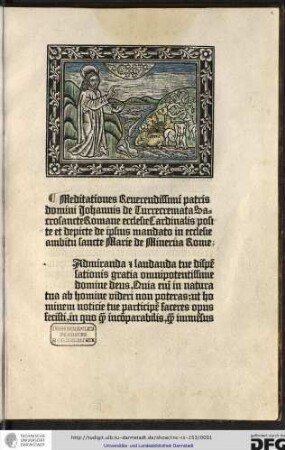 ¶ Meditationes Reuerendissimi patris
domini Johannis de Turrecremata Sa⸗
crosancte Romane ecclesie Cardinalis posi⸗
te et depicte de ipsius mandato in ecclesie
ambitu sancte Marie de Minerua Rome:
Admiranda ⁊ laudanda tue dispē
sationis gratia omnipotentissime
domine deus. Quia eni in natura
tua ab homine videri non poteras: ut ho
minem noticie tue participē faceres opus
fecisti, in quo ꝙ̄ incōparabilis, ꝙ̄ inmēsus
TECHNISCHE
UNIVERSITÄT
DARMSTADT
http://tudigit.ulb.tu-darmstadt.de/show/inc-iii-153/0001
Universitäts- und Landesbibliothek Darmstadt
gefördert durch die
DFG